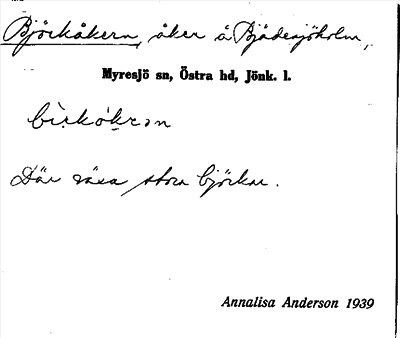 Björkåkern, åker å Bjädesjöholm,
Myresjö sn, Östra hd, Jönk. l.
bìrkókrɔn
Där växa stora björkar.
Annalisa Anderson 1939